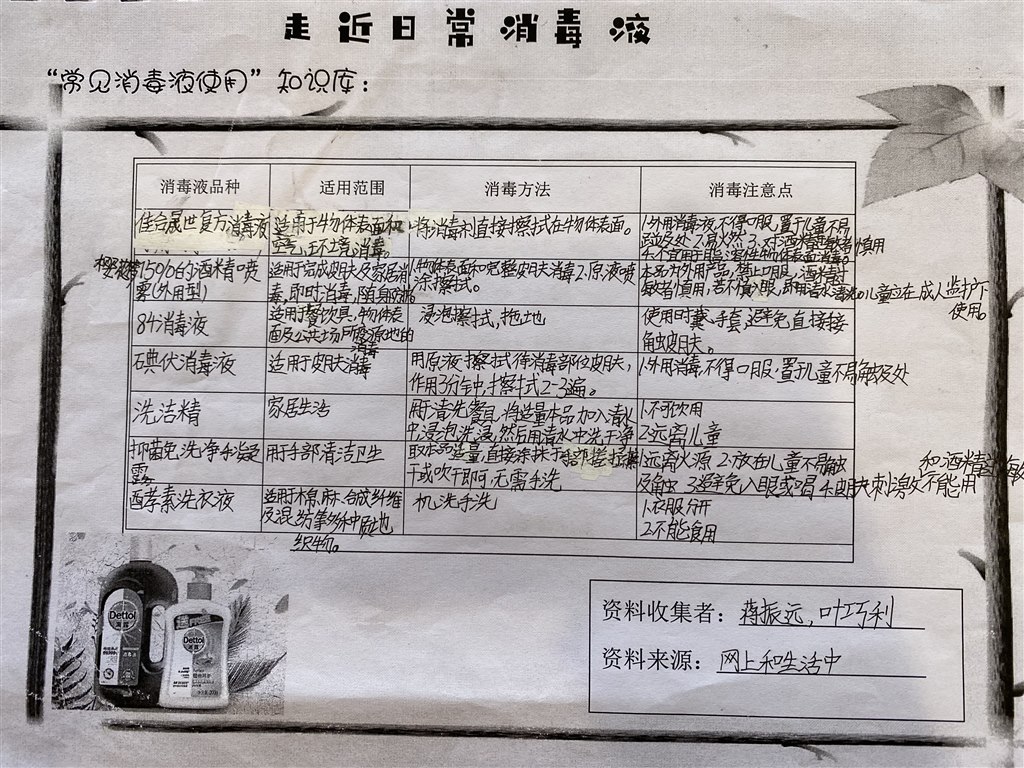 走近日常消毒液
“常见消毒液使用”知识库：
消毒液品种 适用范围 消毒方法 消毒注意点
佳合晟世复方消毒液 适用于物体表面和 将消毒剂直接擦拭在物体表面。 1.外用消毒液,不得口服,置于儿童不易
空气环境消毒。 触及处 2.易燃 3.对酒精过敏者慎用
4.不宜用于脂溶性物体表面消毒。
75%的酒精喷 适用完成皮肤及家居消 1.物体表面和完整皮肤消毒 2.原液喷 本品为外用产品,禁止口服,酒精过
雾(外用型) 毒,即时消毒,随身 涂擦拭。 敏者慎用,若不慎入眼,即用清水 儿童应在成人监护下
使用。
84消毒液 适用于餐饮具,物体表 浸泡擦拭,拖地 使用时戴手套,避免直接接
面及公共场所 地的 触皮肤。
消毒
碘伏消毒液 适用于皮肤消毒 用原液擦拭待消毒部位皮肤, 1.外用消毒,不得口服,置于儿童不易触及处
作用3分钟,擦拭2-3遍。
洗洁精 家居生活 用于清洗餐具,将适量本品加入清水 1.不可饮用
中,浸泡洗浸,然后用清水中洗干净 2.远离儿童
抑菌免洗净手凝 用于手部清洁卫生 取本品适量,直接涂抹于手部搓揉 1.远离火源 2.放在儿童不易触 和酒精过敏
露 干或吹干即可,无需手洗 及角虫 3.避免入眼或 不能用
酉孝素洗衣液 适用于棉、麻、合成纤维 机洗手洗 1.衣服分开
及混纺等多种质地 2.不能食用
织物。
Dettol
滴露
Dettol
滴露
资料收集者：蒋振远,叶巧利
资料来源：网上和生活中